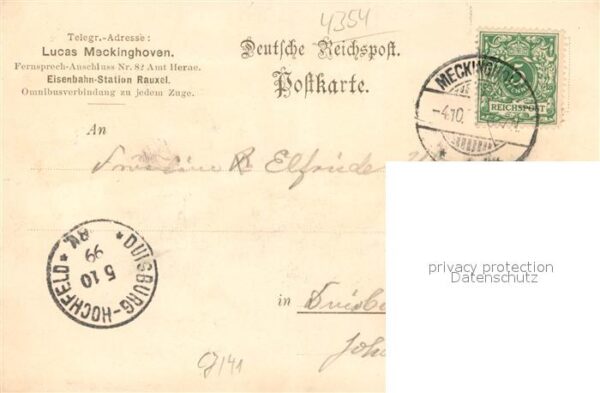 4354
Telegr.-Adresse:
Lucas Meckinghoven.
Fernsprech-Anschluss Nr. 82 Amt Herne.
Eisenbahn-Station Rauxel.
Omnibusverbindung zu jedem Zuge.
Deutsche Reichspost.
Postkarte.
MECKINGHOVEN
-4.10.
REICHSPOST
An
Elfriede
DUISBURG-HOCHFELD
5 10
99
privacy protection
Datenschutz
in